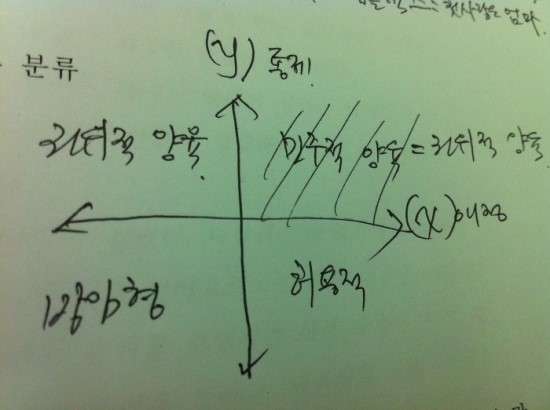 첫사랑은 엄마.
분류
(y) 통제
권위적 양육
민주적 양육 = 권위적 양육
(x) 애정
허용적
방임형